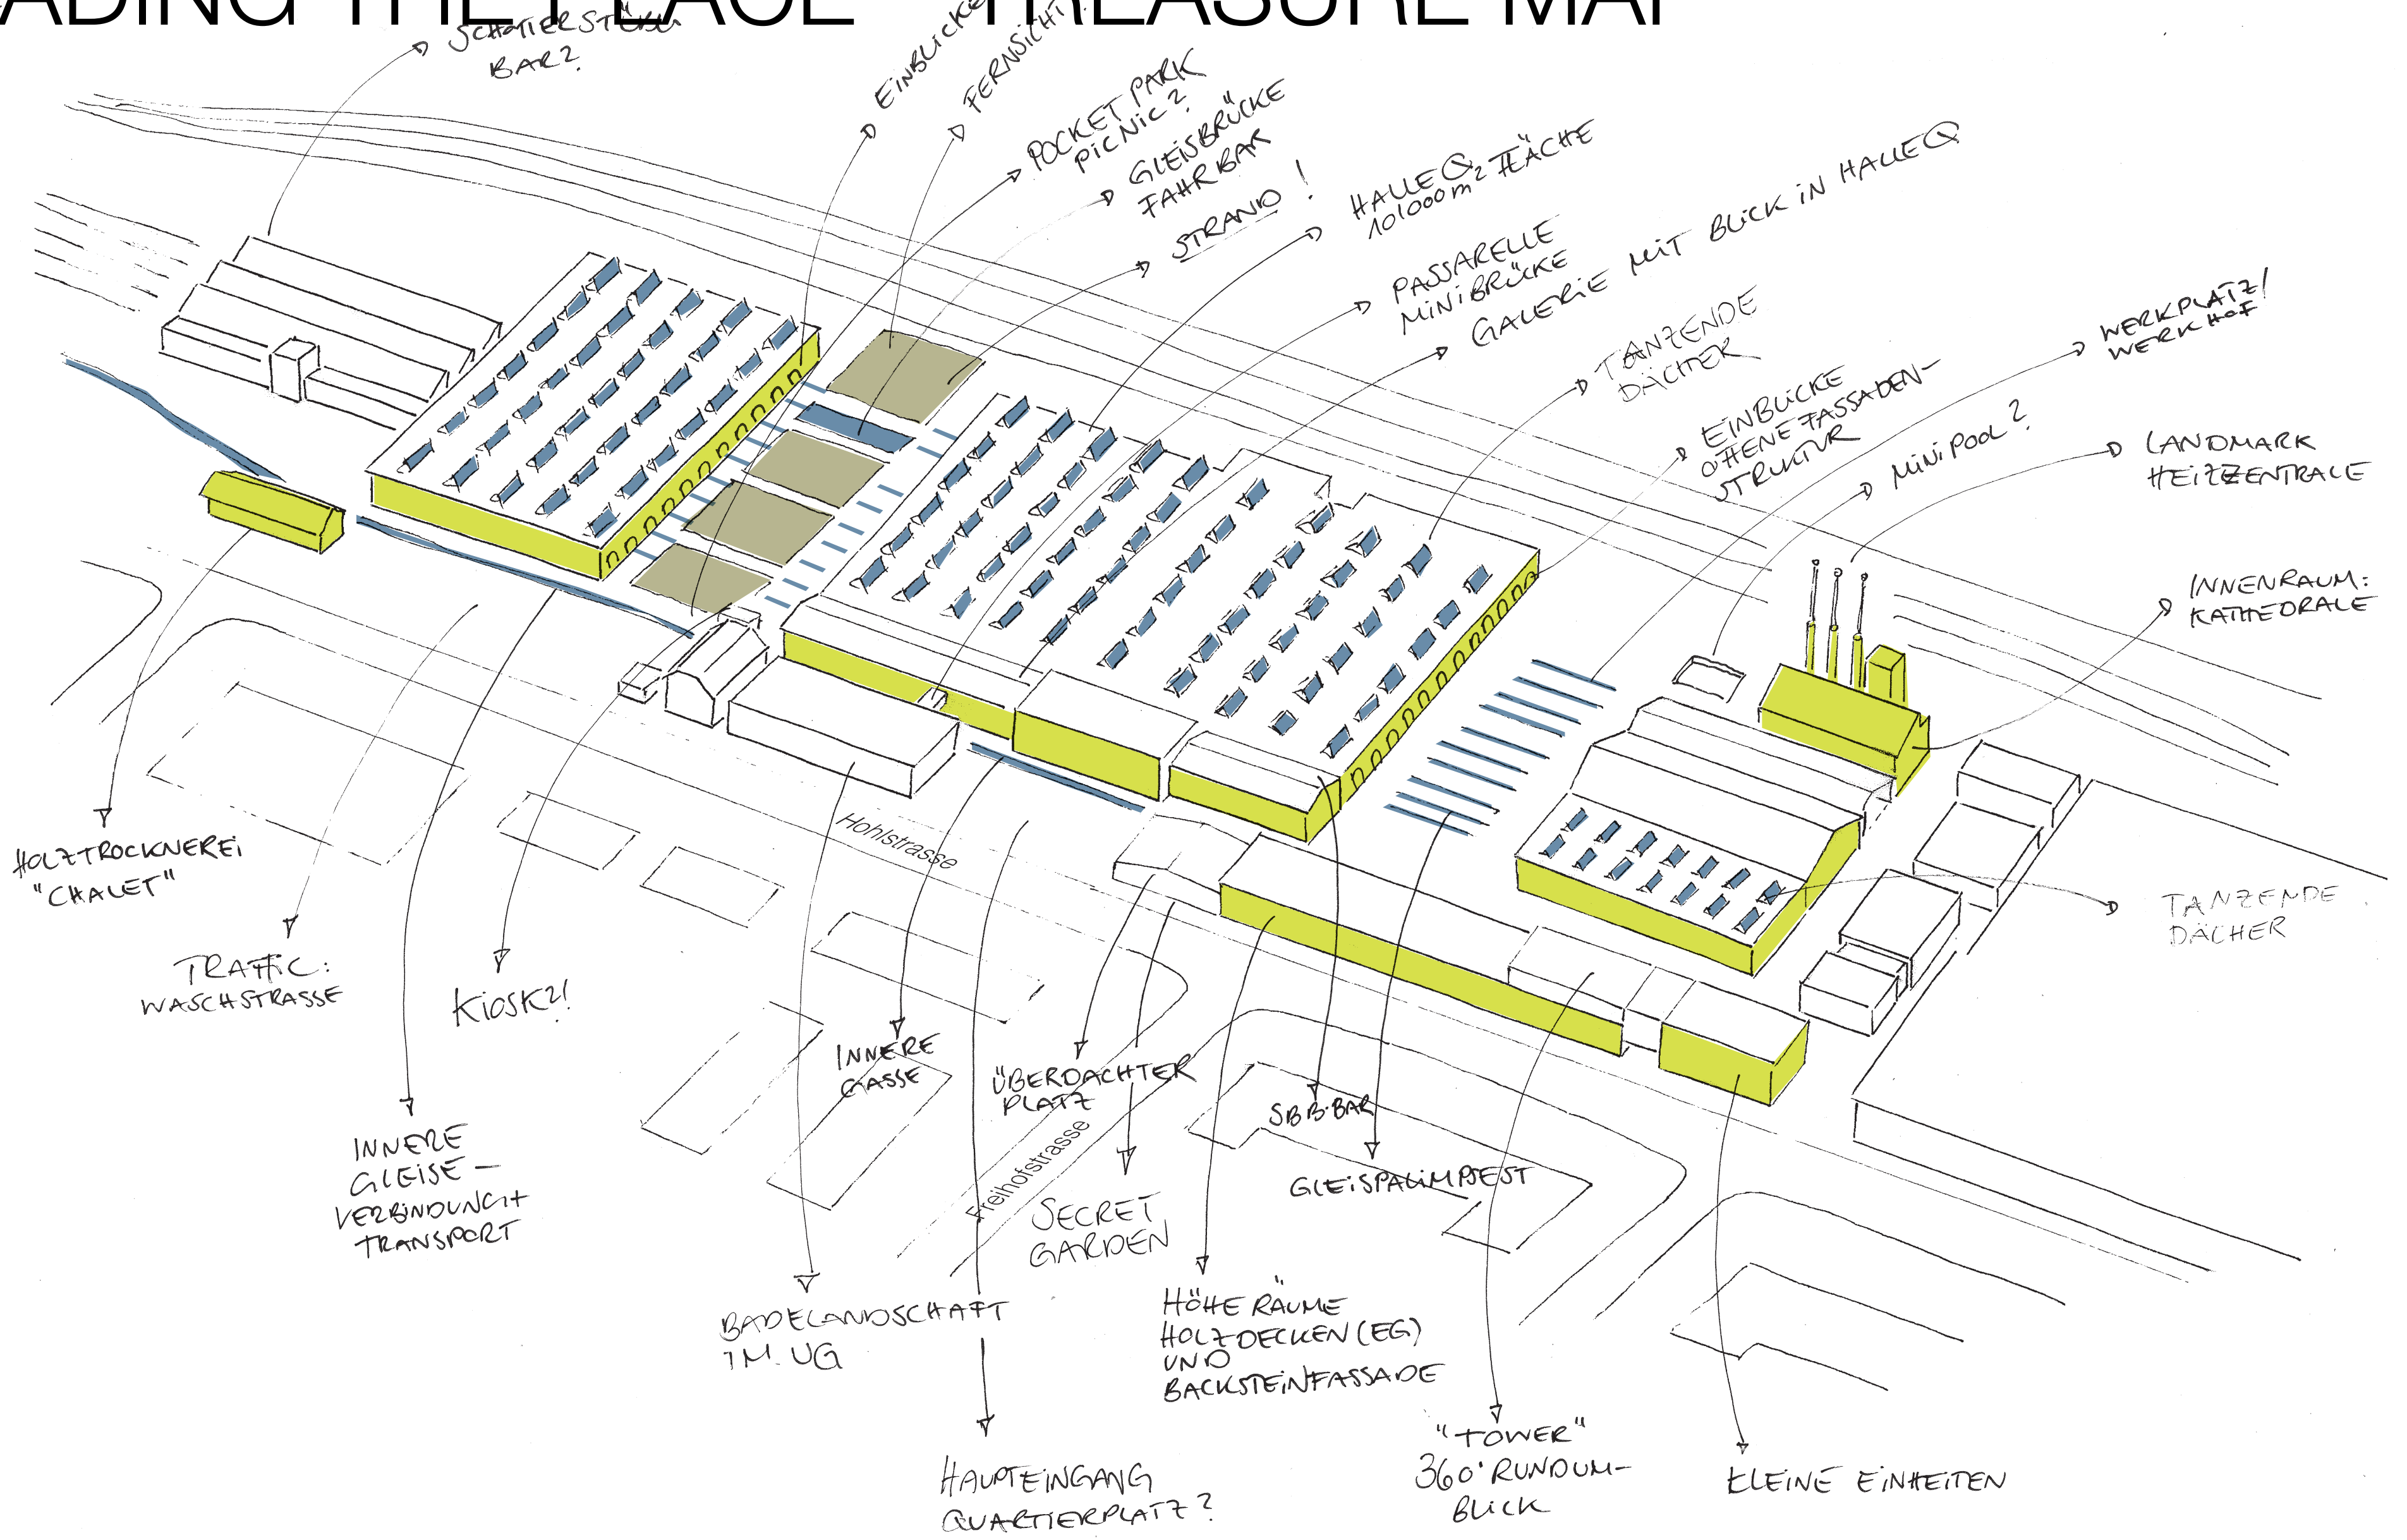 ADING THE PLACE – TREASURE MAP
BAR?
EINBLICKE
FERNSICHT!
POCKET PARK
PICNIC?
GLEISBRÜCKE
FAHRBAR
STRAND !
HALLE Q
10'000m² FLÄCHE
PASSARELLE
MINIBRÜCKE
GALERIE MIT BLICK IN HALLE Q
TANZENDE
DÄCHTER
EINBLICKE
OFFENE FASSADEN-
STRUKTUR
WERKPLATZ/
WERKHOF
MINIPOOL?
LANDMARK
HEIZZENTRALE
INNENRAUM:
KATHEDRALE
TANZENDE
DÄCHER
Hohlstrasse
HOLZTROCKNEREI
"CHALET"
TRAFFIC:
WASCHSTRASSE
KIOSK?!
INNERE
GLEISE –
VERBINDUNG+
TRANSPORT
INNERE
GASSE
ÜBERDACHTER
PLATZ
SBB-BAR
Freihofstrasse
GLEISPALIMPSEST
SECRET
GARDEN
BADELANDSCHAFT
IM UG
HÖHE RÄUME
HOLZDECKEN (EG)
UND
BACKSTEINFASSADE
HAUPTEINGANG
QUARTIERPLATZ?
"TOWER"
360° RUNDUM-
BLICK
KLEINE EINHEITEN